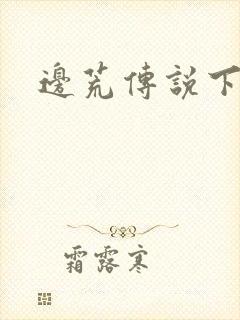 邊荒傳說下
霜露寒